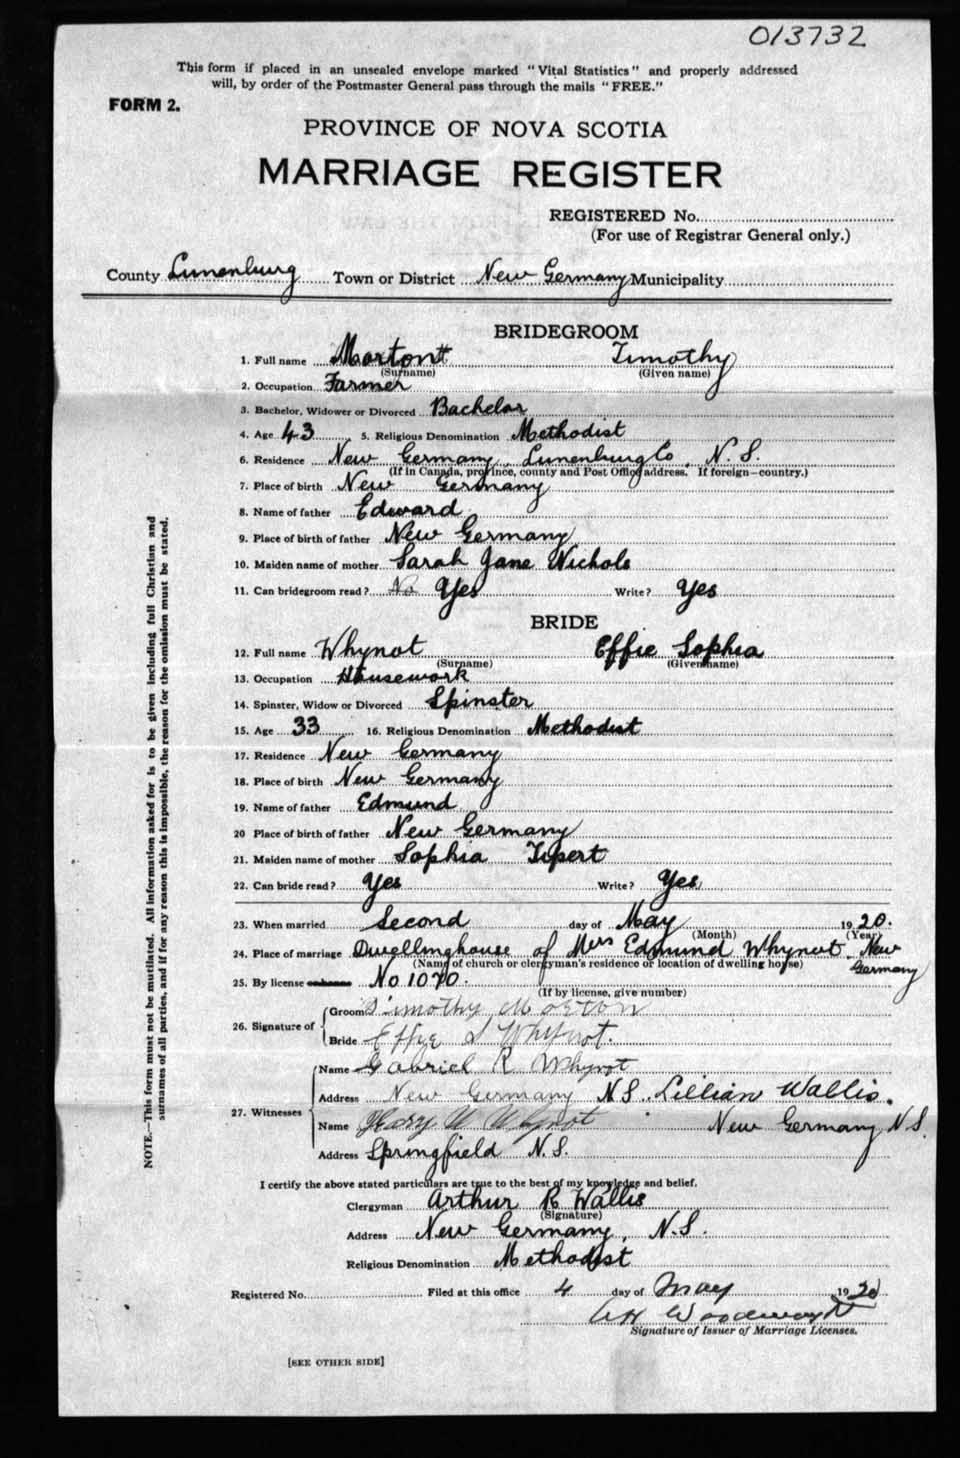 013732
This form if placed in an unsealed envelope marked "Vital Statistics" and properly addressed
will, by order of the Postmaster General pass through the mails "FREE."
FORM 2.
PROVINCE OF NOVA SCOTIA
MARRIAGE REGISTER
REGISTERED No.
(For use of Registrar General only.)
County Lunenburg Town or District New Germany Municipality
BRIDEGROOM
1. Full name Morton Timothy
(Surname) (Given name)
2. Occupation Farmer
3. Bachelor, Widower or Divorced Bachelor
4. Age 43 5. Religious Denomination Methodist
6. Residence New Germany, Lunenburg Co, N. S.
(If in Canada, province, county and Post Office address. If foreign—country.)
7. Place of birth New Germany
8. Name of father Edward
9. Place of birth of father New Germany
10. Maiden name of mother Sarah Jane Nichols
11. Can bridegroom read? No Yes Write? Yes
BRIDE
12. Full name Whynot Effie Sophia
(Surname) (Given name)
13. Occupation Housework
14. Spinster, Widow or Divorced Spinster
15. Age 33 16. Religious Denomination Methodist
17. Residence New Germany
18. Place of birth New Germany
19. Name of father Edmund
20 Place of birth of father New Germany
21. Maiden name of mother Sophia Tipert
22. Can bride read? Yes Write? Yes
23. When married Second day of May 1920.
(Month) (Year)
24. Place of marriage Dwellinghouse of Mrs Edmund Whynot, New
Germany
(Name of church or clergyman's residence or location of dwelling house)
25. By license No 1070.
(If by license, give number)
26. Signature of
Groom Timothy Morton
Bride Effie S Whynot.
27. Witnesses
Name Gabriel R Whynot
Address New Germany N S. Lillian Wallis.
Name W Whynot New Germany N S.
Address Springfield N. S.
I certify the above stated particulars are true to the best of my knowledge and belief.
Clergyman Arthur R Wallis
(Signature)
Address New Germany, N.S.
Religious Denomination Methodist
Registered No. Filed at this office 4 day of May 1920
Signature of Issuer of Marriage Licenses.
[SEE OTHER SIDE]
NOTE.—This form must not be mutilated. All information asked for is to be given including full Christian and
surnames of all parties, and if for any reason this is impossible, the reason for the omission must be stated.